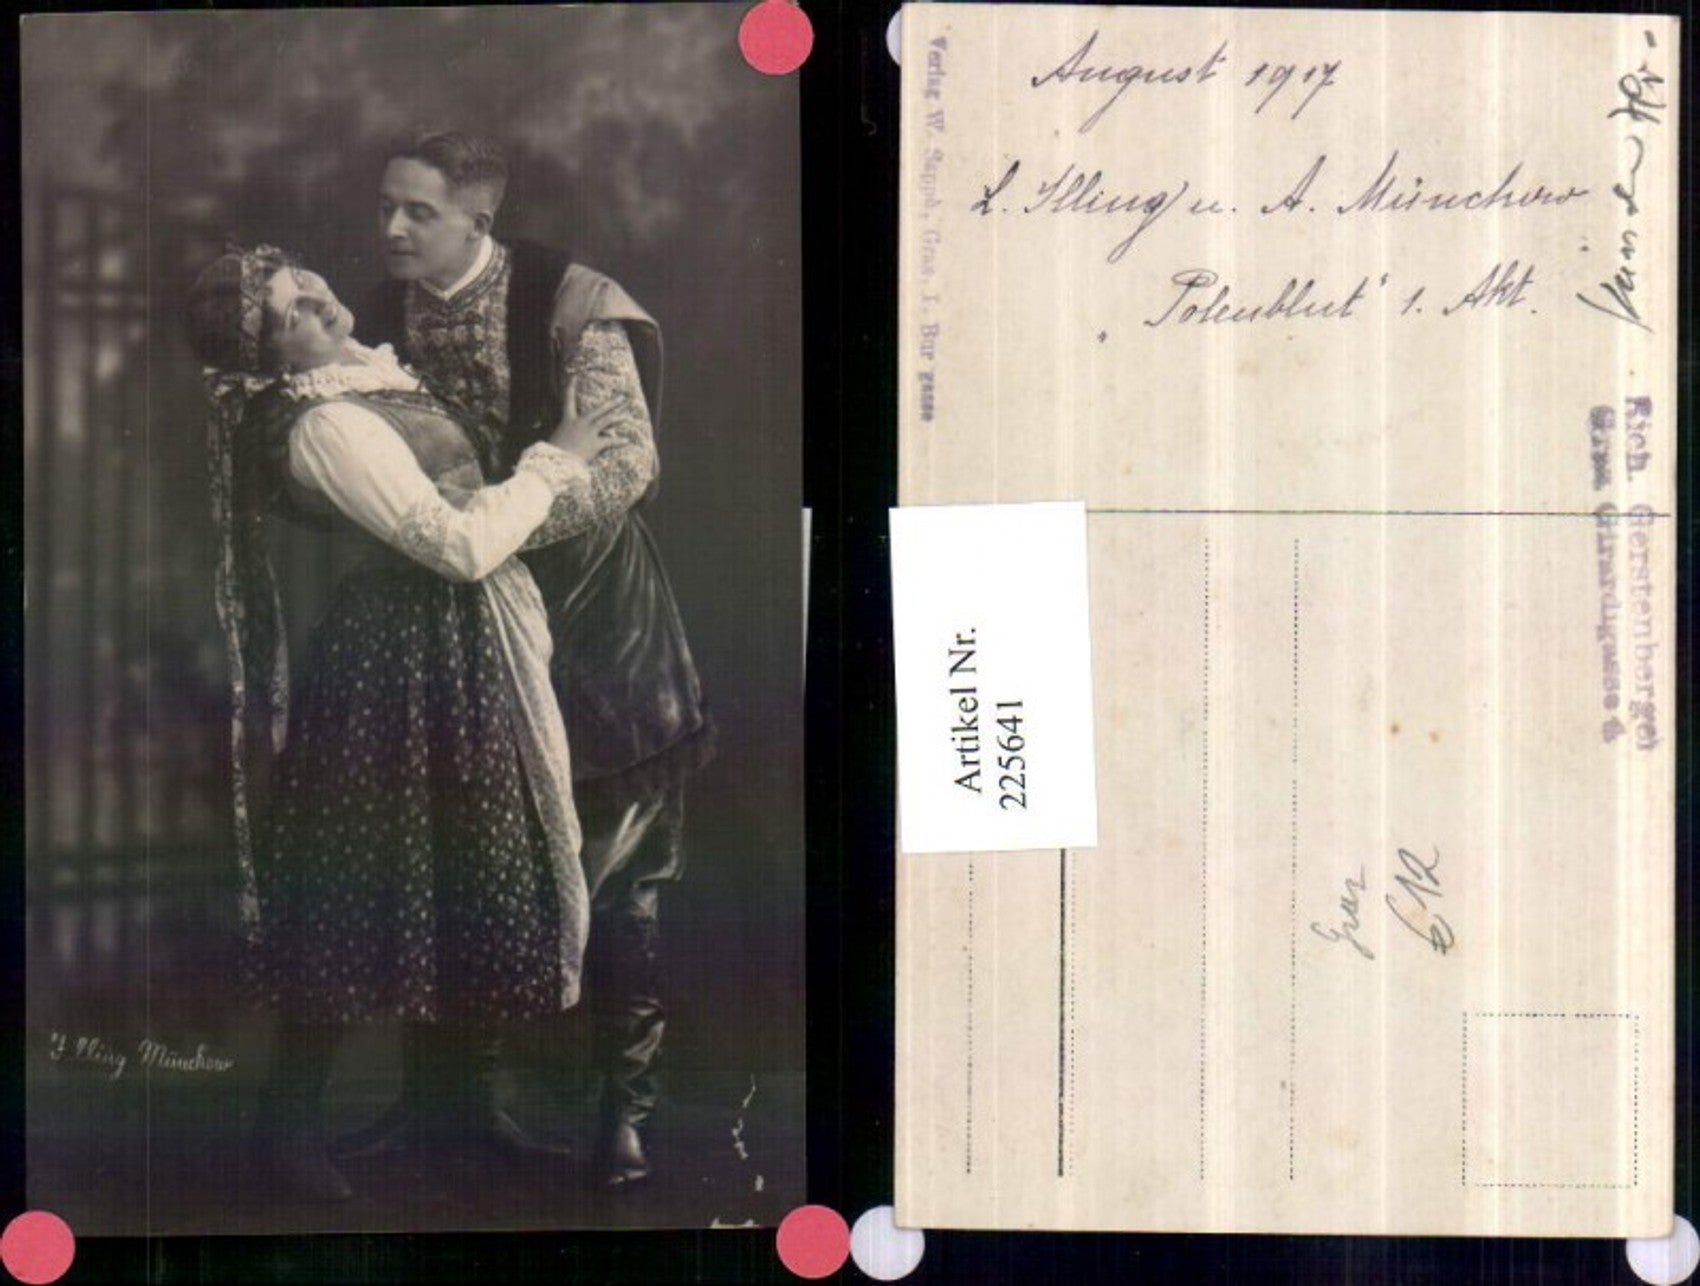 Illing Münchow
Verlag W. Seppd, Graz, I. Bur gasse
August 1917
L. Illing u. A. Münchow
„Polenblut“ 1. Akt.
Rich. Gerstenberger
Graz Girardigasse 4
Artikel Nr.
225641
Graz
612